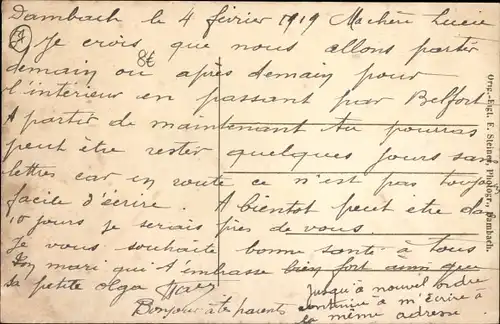 Dambach le 4 février 1919 Ma chère Lucie
Je crois que nous allons partir
8€
demain ou après demain pour
l'intérieur en passant par Belfort
A partir de maintenant tu pourras
peut être rester quelques jours sans
lettres car en route ce n'est pas toujours
facile d'écrire. A bientôt peut être dans
10 jours je serais près de vous.
Je vous souhaite bonne santé à tous
Ton mari qui t'embrasse bien fort ainsi que
sa petite Olga
Bonjour à tes parents
Jusqu'à nouvel ordre
continue à m'écrire à
la même adresse
Org.-Eigt. F. Steiner, Photogr., Dambach.